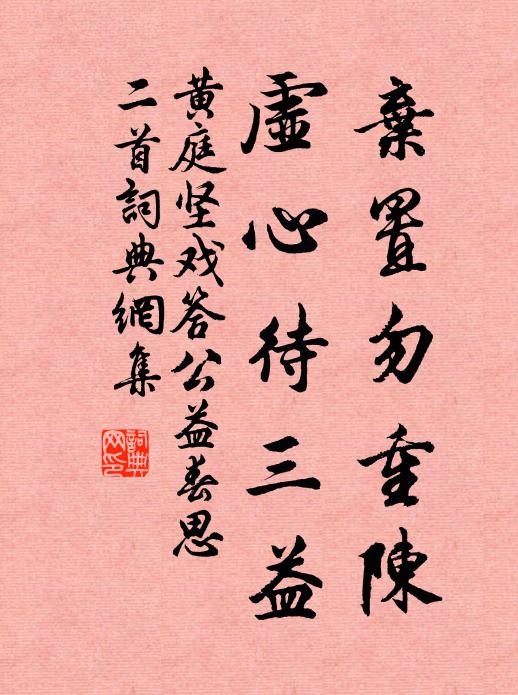 棄置勿重陳
虛心待三益
黄庭坚戏答公益春思
二首詞典網集
詞典網印